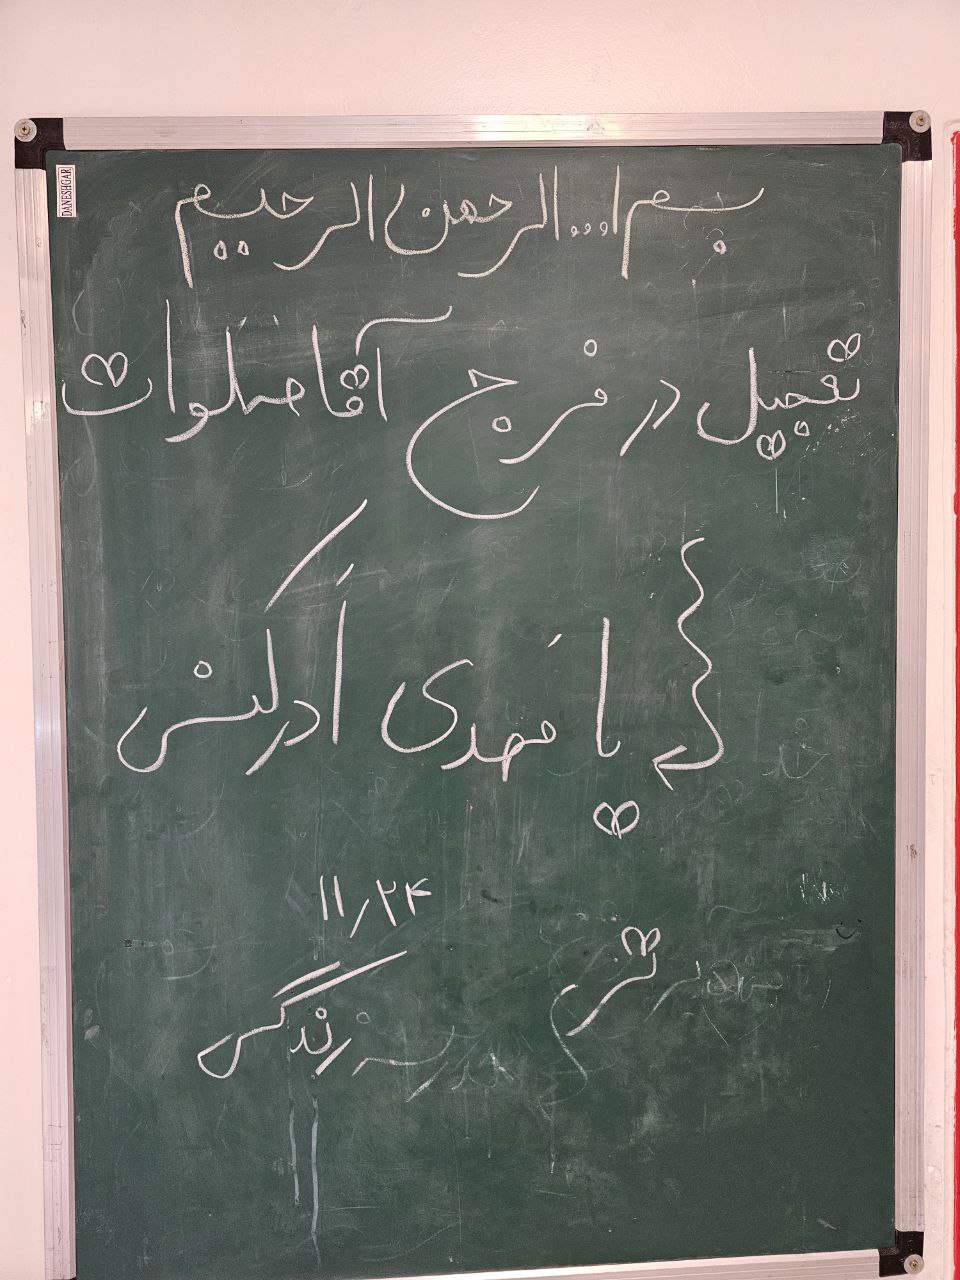 DANESHGAR
بسم ا... الرحمن الرحیم
تعجیل در فرج آقا صلوات
یا مَهدی اَدرکنی
۱۱/۲۴
ترم
مدرسه زندگی